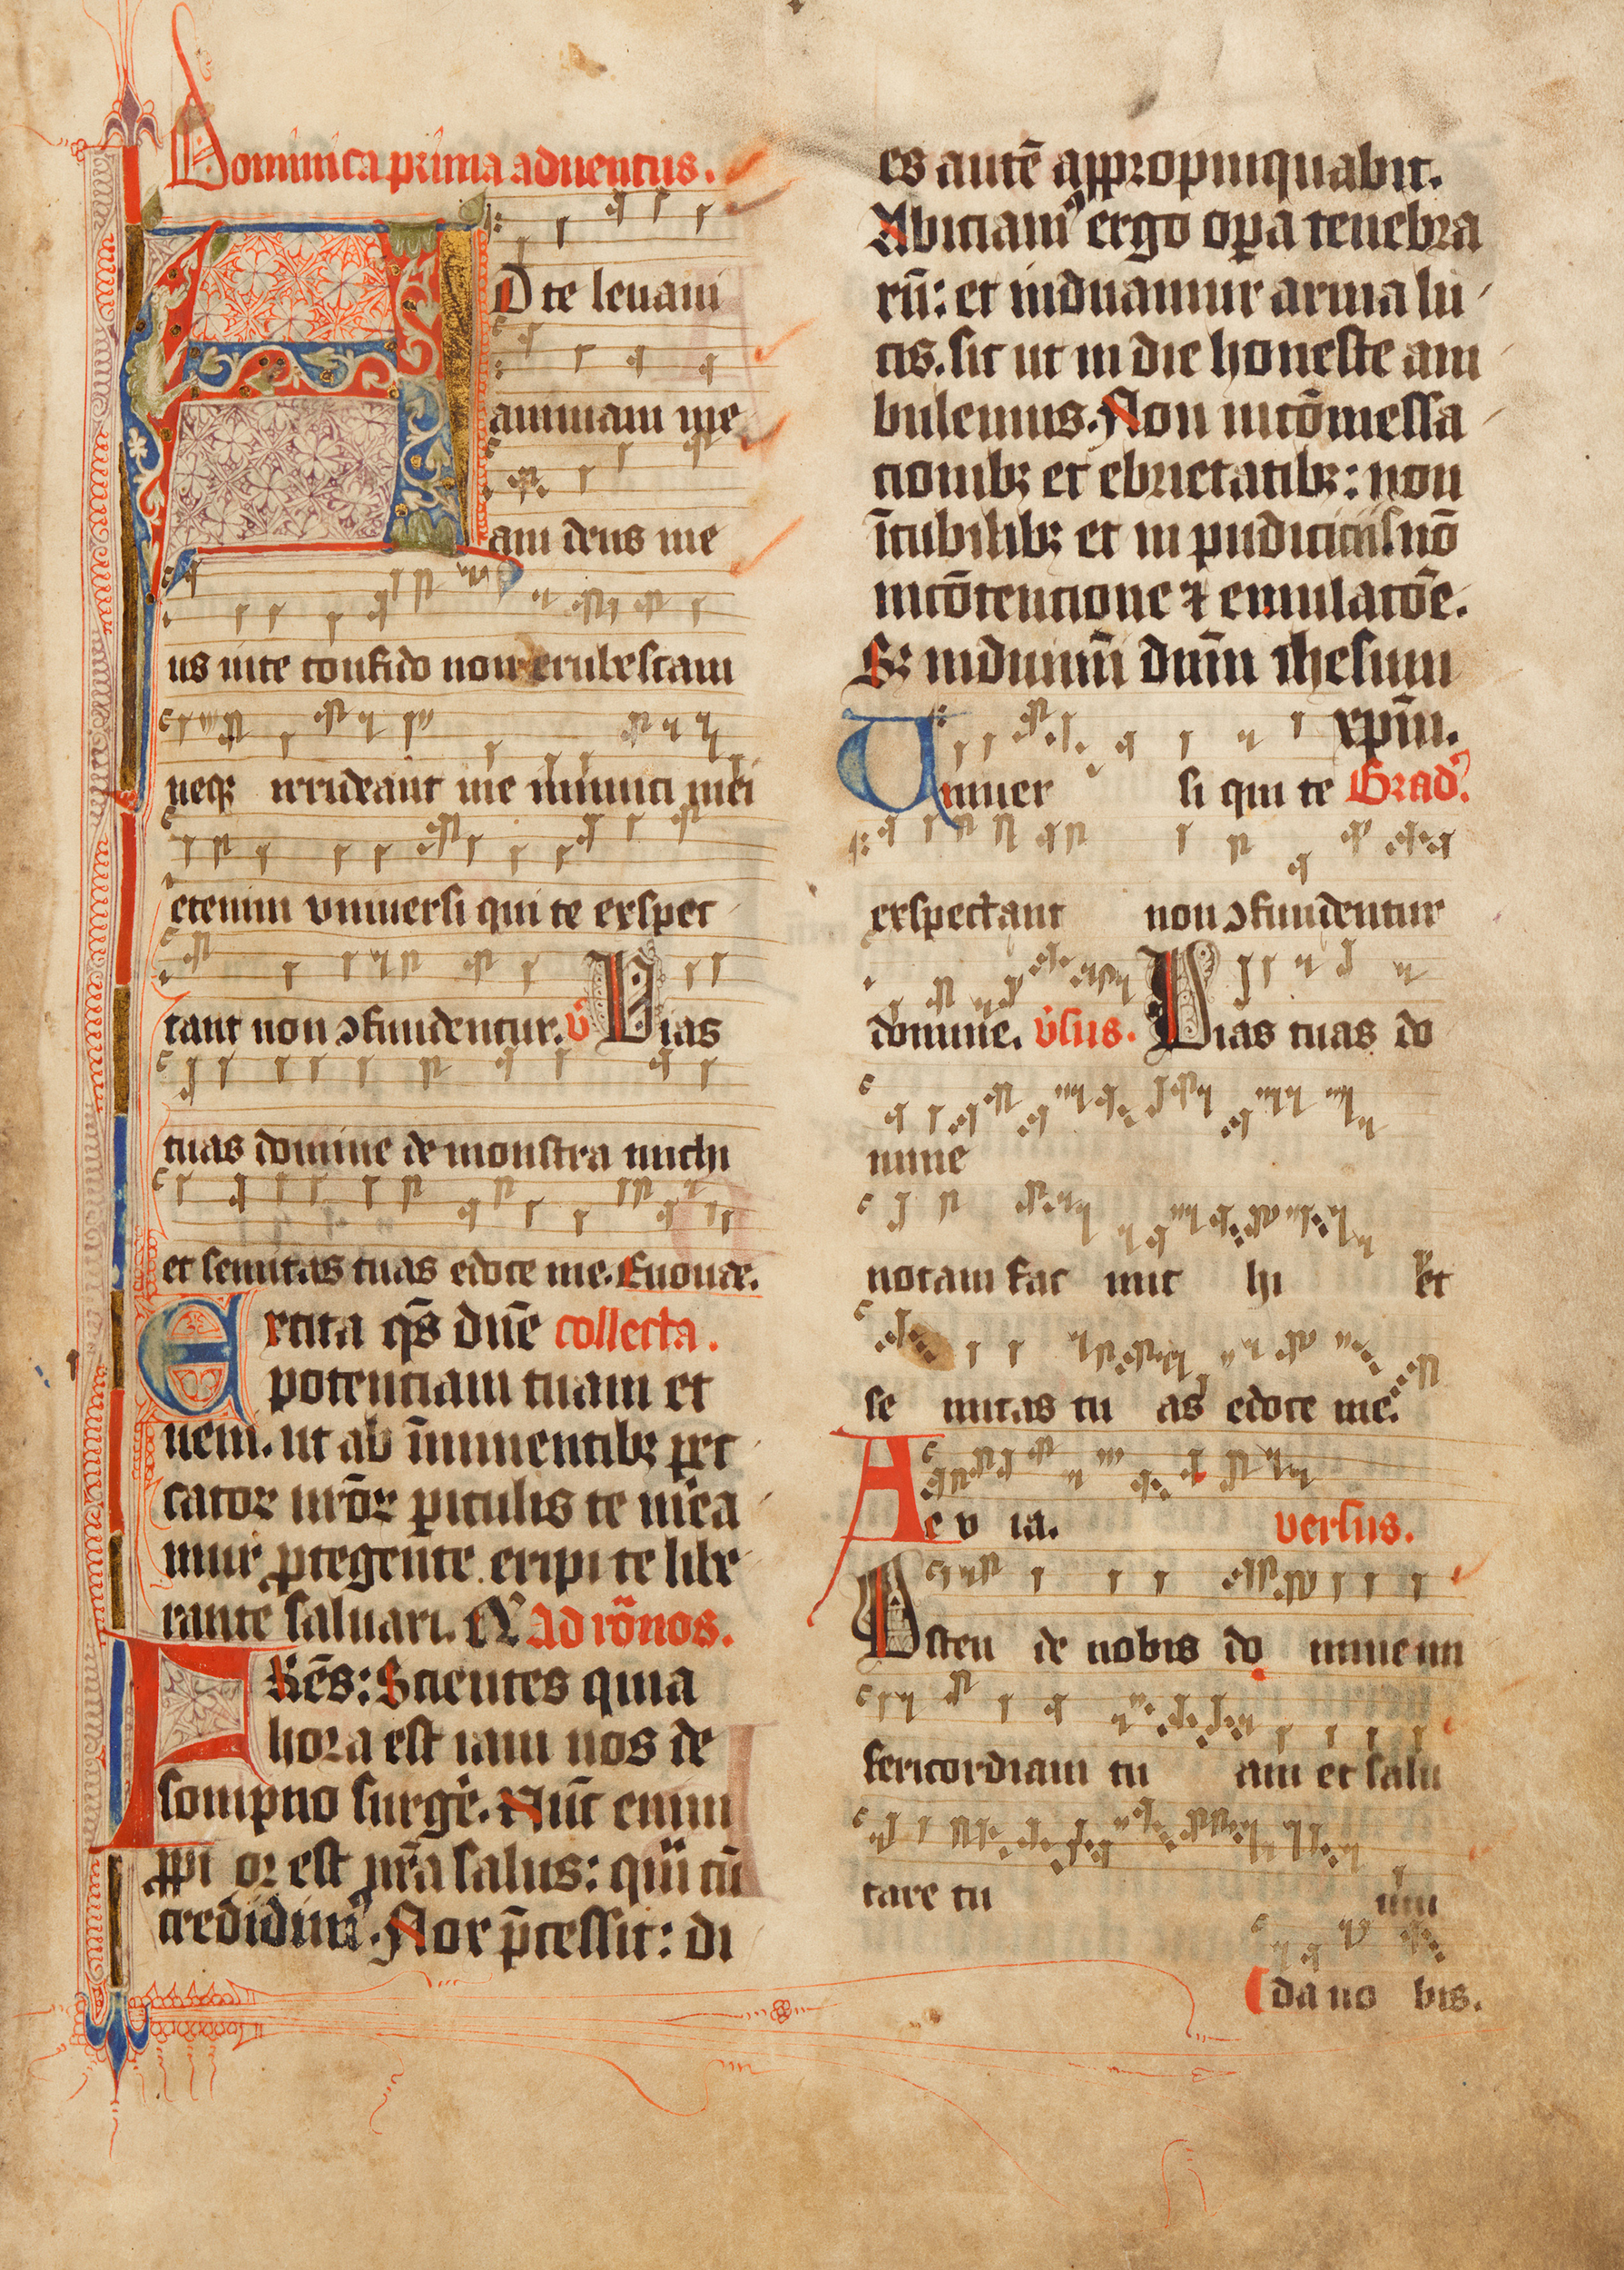 Dominica prima aduentus.
AD te leuaui
animam me
am deus me
us in te confido non erubescam
neq3 irrideant me inimici mei
etenim vniuersi qui te exspec
tant non ↄfundentur. v̉ Vias
tuas domine demonstra michi
et semitas tuas edoce me. Euouae.
Excita q̄s dn̄e collecta.
potenciam tuam et
veni. ut ab īminentib3 pec
catoꝝ nr̄oꝝ piculis te m̉ea
mur ꝓtegente eripi te libe
rante saluari. Q Ad roͫnos.
FRēs: Scientes quia
hora est iam nos de
sompno surgẻ. Nūc enim
ꝓpi or est nr̄a salus: qͣm cū
credidim᾿. Nox p̄cessit: di
es autē appropinquabit.
Abiciam᾿ ergo oꝑa tenebra
rū: et induamur arma lu
cis. sic ut in die honeste am
bulemus. Non in cōmessa
cionib3 et ebrietatib3: non
ī cubilib3 et in pudiciciis nō
in cōtencione ⁊ emulacōe.
S3 induimī dn̄m ihesum
xpm̄.
Vniuer si qui te Grad᾿.
exspectant non ↄfundentur
domine. v̉sus. Vias tuas do
mine
notam fac mic hi et
se mitas tu as edoce me.
Ae v ia. versus.
Osten de nobis do mine mi
sericordiam tu am et salu
tare tu um
da no bis.